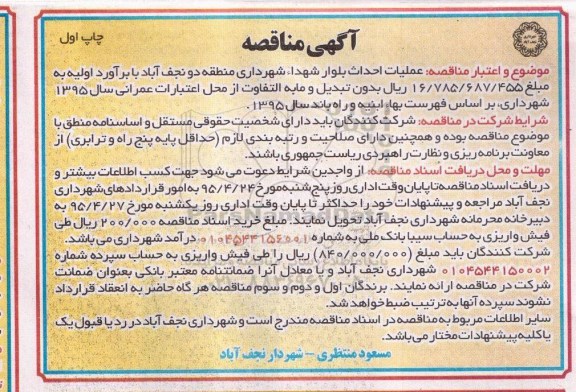 آگهی مناقصه
چاپ اول
موضوع و اعتبار مناقصه: عملیات احداث بلوار شهدا، شهرداری منطقه دو نجف آباد با برآورد اولیه به
مبلغ ۱۶/۷۸۵/۶۸۷/۴۵۵ ریال بدون تبدیل و مابه التفاوت از محل اعتبارات عمرانی سال ۱۳۹۵
شهرداری، بر اساس فهرست بها ابنیه و راه و باند سال ۱۳۹۵.
شرایط شرکت در مناقصه: شرکت کنندگان باید دارای شخصیت حقوقی مستقل و اساسنامه منطق با
موضوع مناقصه بوده و همچنین دارای صلاحیت و رتبه بندی لازم (حداقل پایه پنج راه و ترابری) از
معاونت برنامه ریزی و نظارت راهبردی ریاست جمهوری باشند.
مهلت و محل دریافت اسناد مناقصه: از واجدین شرایط دعوت می شود جهت کسب اطلاعات بیشتر و
دریافت اسناد مناقصه تا پایان وقت اداری روز پنج شنبه مورخ ۹۵/۴/۲۴ به امور قراردادهای شهرداری
نجف آباد مراجعه و پیشنهادات خود را حداکثر تا پایان وقت اداری روز یکشنبه مورخ ۹۵/۴/۲۷ به
دبیرخانه محرمانه شهرداری نجف آباد تحویل نمایند. مبلغ خرید اسناد مناقصه ۲۰۰/۰۰۰ ریال طی
فیش واریزی به حساب سیبا بانک ملی به شماره ۰۱۰۴۵۴۴۱۵۶۰۰۱ درآمد شهرداری می باشد.
شرکت کنندگان باید مبلغ (۸۴۰/۰۰۰/۰۰۰) ریال را طی فیش واریزی به حساب سپرده شماره
۰۱۰۴۵۴۴۱۵۰۰۰۲ شهرداری نجف آباد و یا معادل آنرا ضمانتنامه معتبر بانکی بعنوان ضمانت
شرکت در مناقصه ارائه نمایند. برندگان اول و دوم و سوم مناقصه هر گاه حاضر به انعقاد قرارداد
نشوند سپرده آنها به ترتیب ضبط خواهد شد.
سایر اطلاعات مربوط به مناقصه در اسناد مناقصه مندرج است و شهرداری نجف آباد در رد یا قبول یک
یا کلیه پیشنهادات مختار می باشد.
مسعود منتظری - شهردار نجف آباد